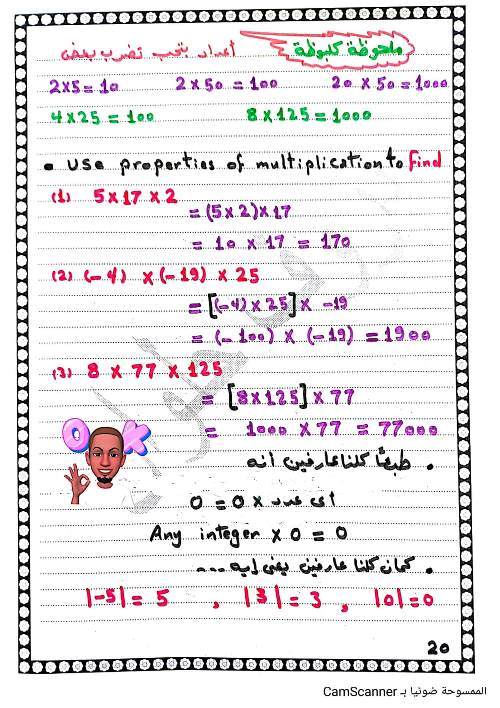 ملحوظة كلبوظة
أعداد بتحب تضرب بعض
2x5=10 2x50=100 20x50=1000
4x25=100 8x125=1000
• use properties of multiplication to find
(1) 5x17x2
= (5x2)x17
= 10 x 17 = 170
(2) (-4) x (-19) x 25
= [(-4) x 25] x -19
= (-100) x (-19) = 1900
(3) 8 x 77 x 125
= [8x125] x 77
= 1000 x 77 = 77000
OK
• طبعًا كلنا عارفين أنه
أى عدد x 0 = 0
Any integer x 0 = 0
• كمان كلنا عارفين يعنى إيه ...
|-5| = 5 , |3| = 3 , |0| = 0
20
الممسوحة ضوئيا بـ CamScanner